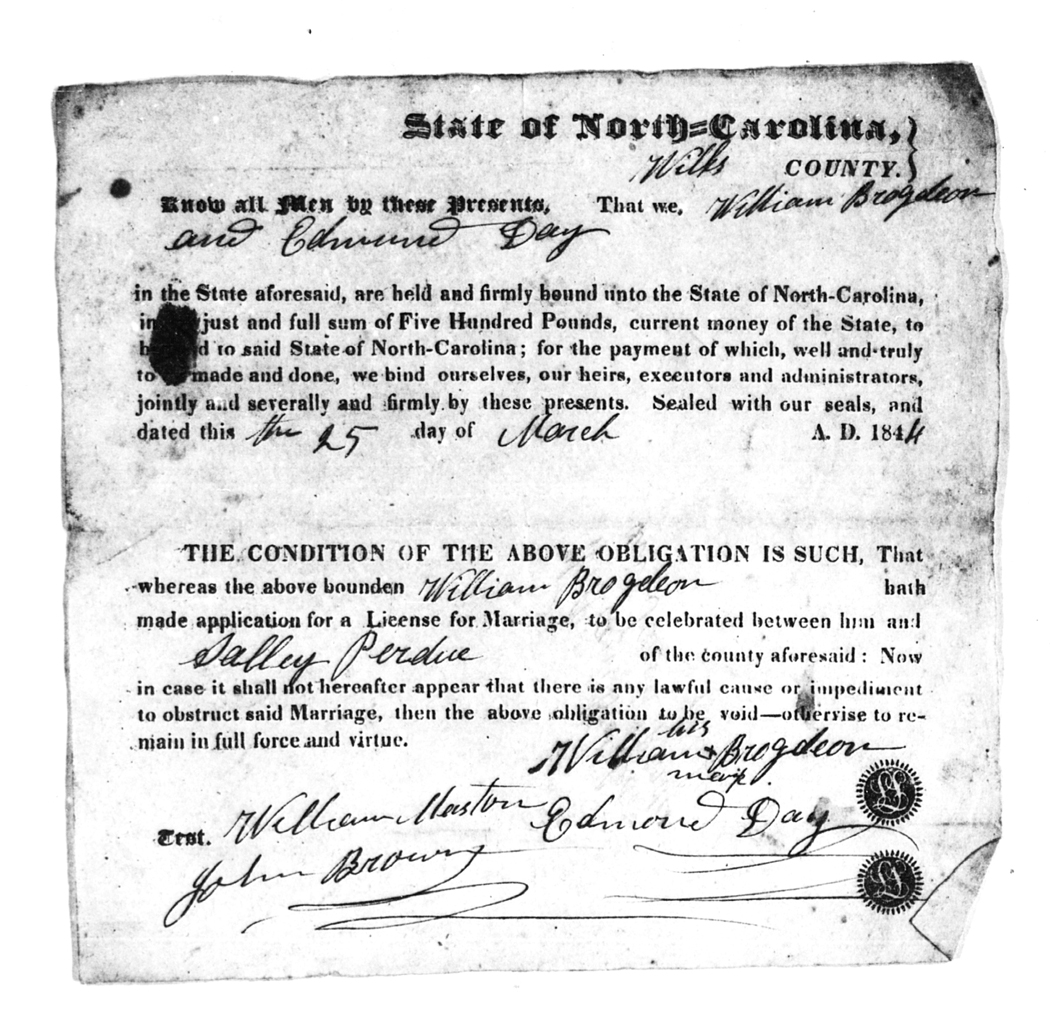 State of North=Carolina,
Wilks COUNTY.
Know all Men by these Presents, That we, William Brogdeon
and Edmund Day
in the State aforesaid, are held and firmly bound unto the State of North-Carolina,
in just and full sum of Five Hundred Pounds, current money of the State, to
d to said State of North-Carolina; for the payment of which, well and truly
to made and done, we bind ourselves, our heirs, executors and administrators,
jointly and severally and firmly by these presents. Sealed with our seals, and
dated this the 25 day of March A. D. 1844
THE CONDITION OF THE ABOVE OBLIGATION IS SUCH, That
whereas the above bounden William Brogdeon hath
made application for a License for Marriage, to be celebrated between him and
Salley Perdue of the county aforesaid: Now
in case it shall not hereafter appear that there is any lawful cause or impediment
to obstruct said Marriage, then the above obligation to be void—otherwise to re-
main in full force and virtue.
his
William + Brogdeon
mark
Test. William Maston Edmond Day
John Brown
LS
LS